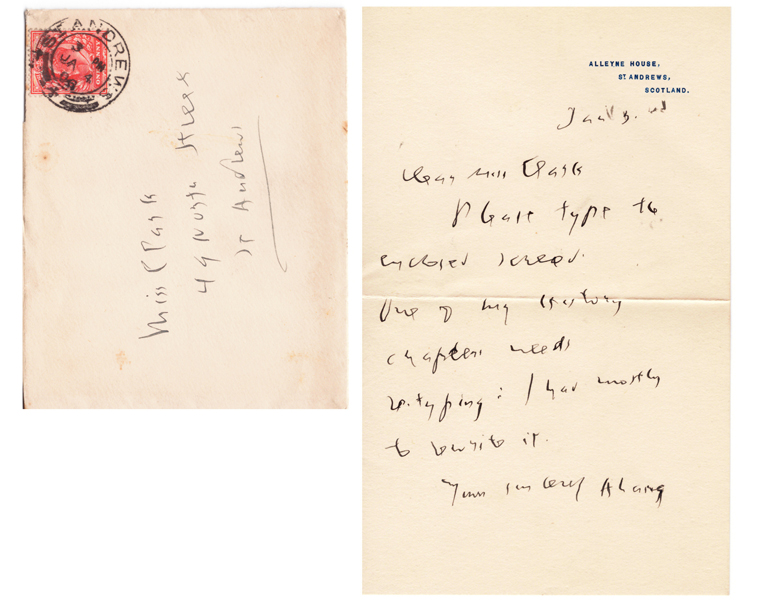 ST ANDREWS
3 PM
JA 4
Miss Clark
49 North Street
St Andrews
ALLEYNE HOUSE,
ST ANDREWS,
SCOTLAND.
Jan 3.
Dear Miss Clark
Please type the
enclosed screed.
One of my history
chapters needs
re-typing: I had mostly
to rewrite it.
Yours sincerely ALang